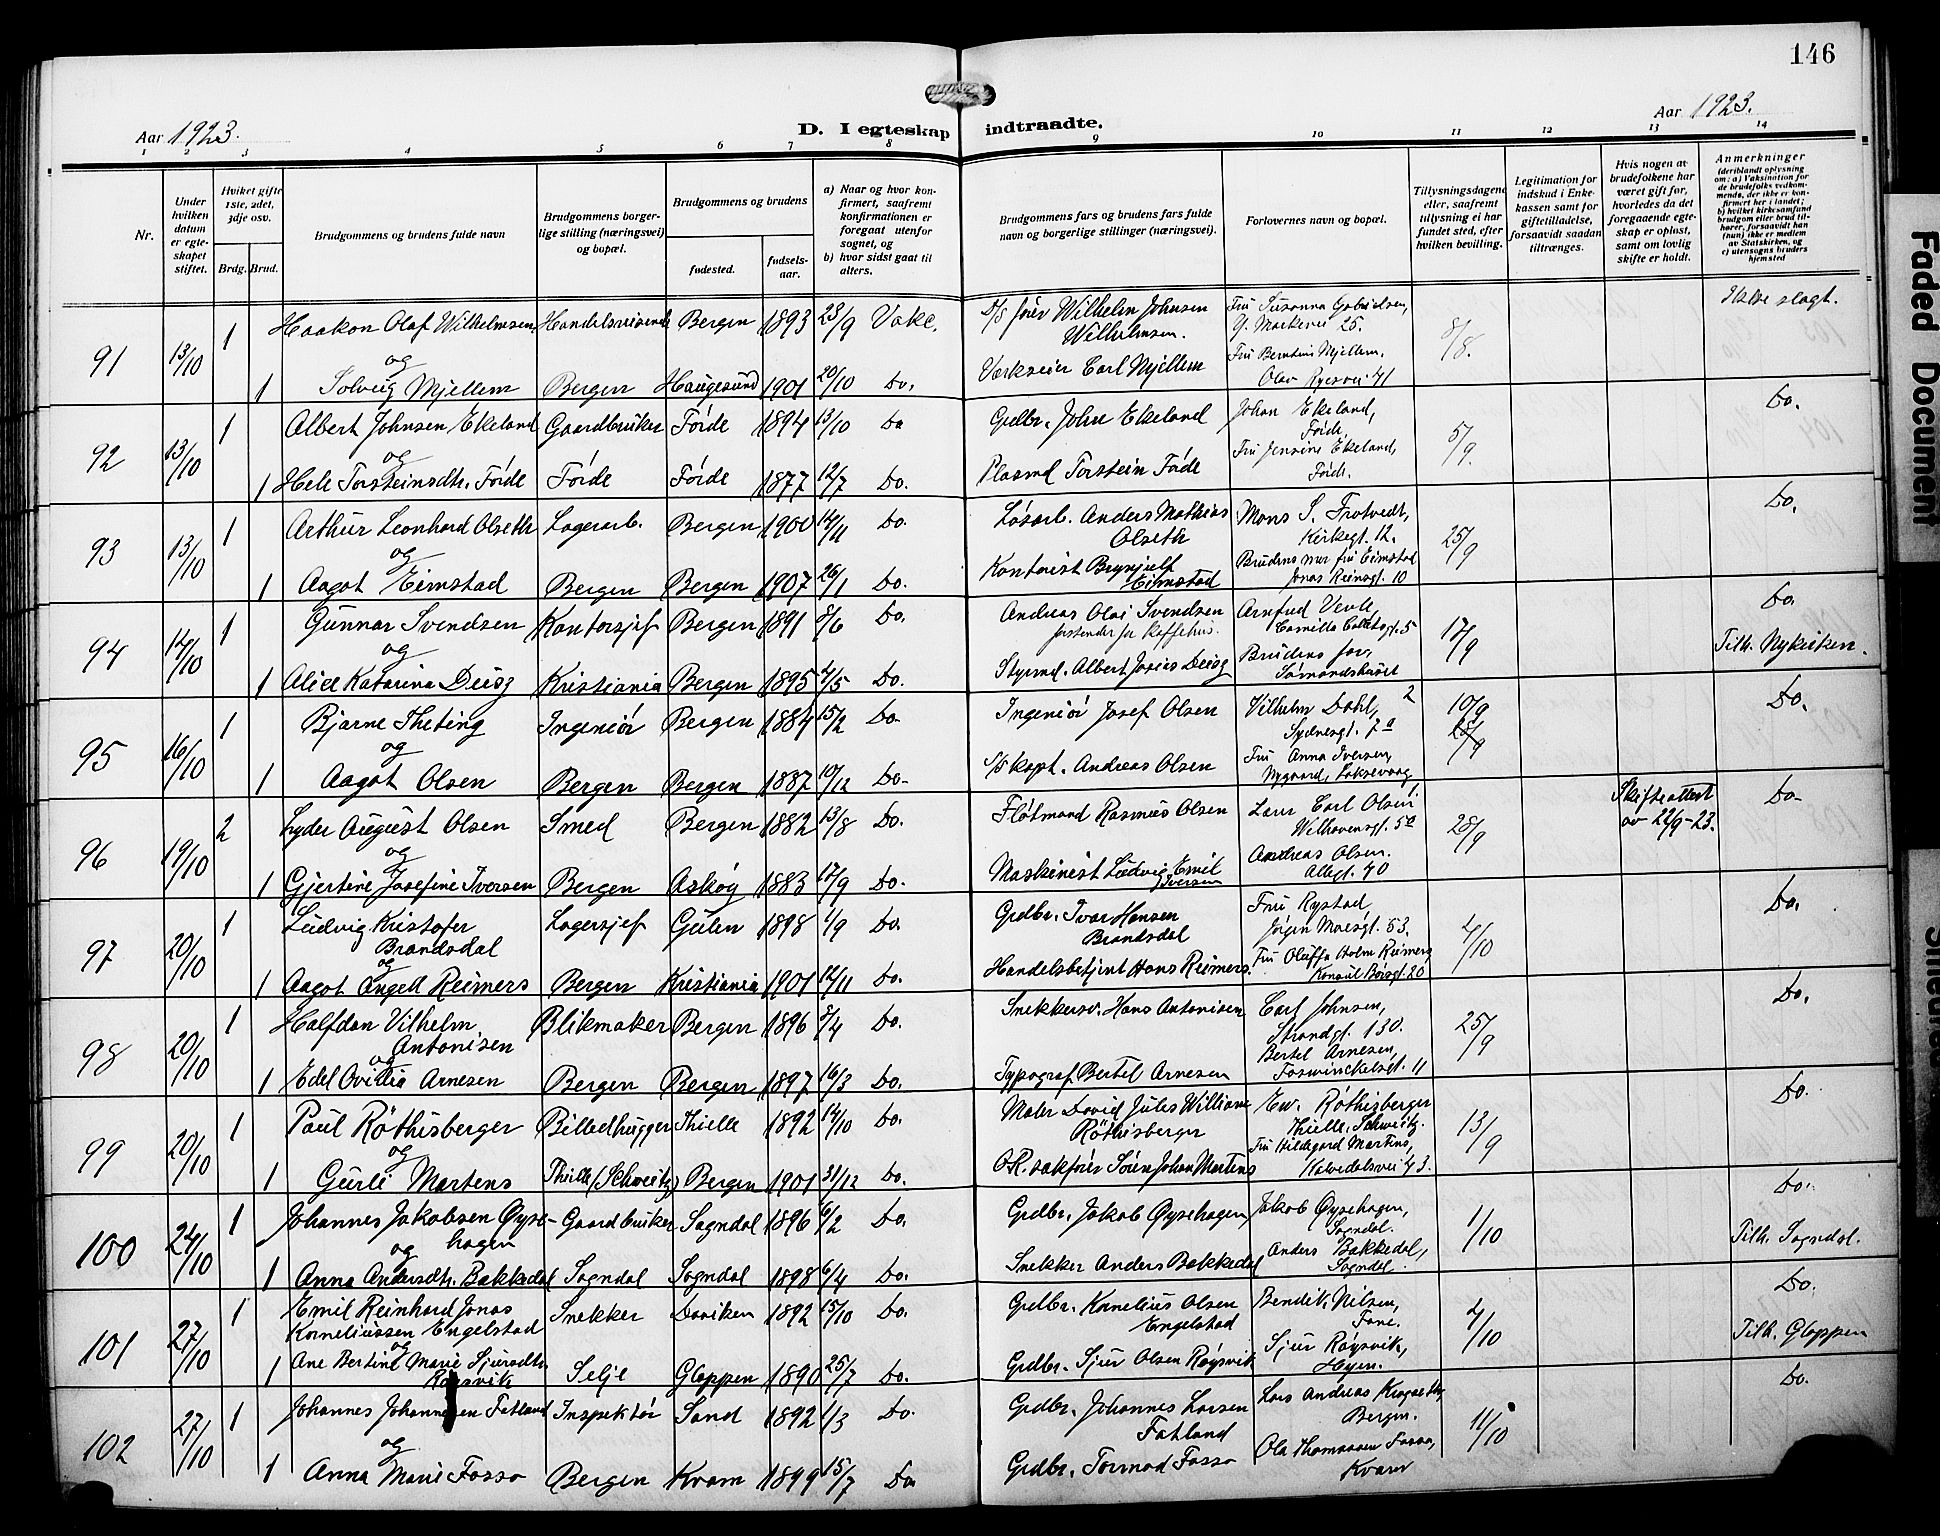 146
Aar 1923.
D. Iegteskap indtraadte.
Aar 1923.
1 2 3 4 5 6 7 8 9 10 11 12 13 14
Nr.
Under hvilken datum er egte-skapet stiftet.
Hviket gifte 1ste, 2det, 3dje osv.
Brdg. Brud.
Brudgommens og brudens fulde navn
Brudgommens borger-lige stilling (næringsvei) og bopæl.
Brudgommens og brudens
fødested.
fødsels-aar.
a) Naar og hvor kon-firmert, saafremt konfirmationen er foregaat utenfor sognet, og
b) hvor sidst gaat til alters.
Brudgommens fars og brudens fars fulde navn og borgerlige stillinger (næringsvei).
Forlovernes navn og bopæl.
Tillysningsdagene eller, saafremt tillysning ei har fundet sted, efter hvilken bevilling.
Legitimation for indskud i Enke-kassen samt for giftetilladelse, forsaavidt saadan tiltrænges.
Hvis nogen av brudefolkene har været gift før, hvorledes da det foregaaende egte-skap er opløst, samt om lovlig skifte er holdt.
Anmerkninger
(deriblandt oplysning om: a) Vaksination for de brudefolks vedkom-mende, der ikke er kon-firmert her i landet; b) hvilket kirkesamfund brudgom eller brud til-hører, forsaavidt han (hun) ikke er medlem av Statskirken, og c) utensogns bruders hjemsted
91 13/10 1 Haakon Olaf Wilhelmsen Handelsreisende Bergen 1893 23/9 D/S fører Wilhelm Johnsen Wilhelmsen. Fru Susanna Gabrielsen, 25. 8/8. Ikke slegt.
og
1 Solveig Mjellem Bergen Haugesund 1901 20/10 Do. Verkseier Carl Mjellem Fru Berntine Mjellem, Olav Ryesvei 41
92 13/10 1 Albert Johnsen Ekeland Gaardbruker Førde 1894 13/10 Do Grdbr. John Ekeland Johan Ekeland, Førde 5/9. Do.
og
1 Hele Torsteinsdtr. Førde Førde Førde 1877 12/7 Do. Plasmd Torstein Førde Fru Jensine Ekeland, Førde.
93 13/10 1 Arthur Leonhard Olseth Lagerarb. Bergen 1900 14/11 Do. Løsarb. Anders Mathias Olseth Mons S. Trotvedt, Kirkegt. 12. 25/9 Do.
og
1 Aagot Eimstad Bergen Bergen 1907 26/1 Do. Kontorist Brynjulf Eimstad Brudens mor fru Eimstad Jonas Reinsgt. 10
94 14/10 1 Gunnar Svendsen Kontorsjef Bergen 1891 8/6 Do. Andreas Olai Svendsen Camilla Colletsgt. 5 17/9 Do. Tilh. Nykirken.
og
1 Alice Katarina Kristiania Bergen 1895 2/5 Do. Styrmd. Albert Josias Brudens far, Sømandshuset
95 16/10 1 Bjarne Theting Ingeniør Bergen 1884 15/2 Do. Ingeniør Josef Olsen Vilhelm Dahl, Sydnesgt. 7a 10/9 Do.
og
1 Aagot Olsen Bergen Bergen 1887 10/12 Do. S/Skapt. Andreas Olsen Fru Anna Iversen, Nygaard, Laksevaag
96 19/10 2 Lyder August Olsen Smed Bergen 1882 13/8 Do. Fløtmand Rasmus Olsen Carl Olsen Welhavensgt. 5a 28/9 Skifteattest av 22/9-23. Do.
og
1 Gjertine Josefine Iversen Bergen Askøy 1883 17/9 Do. Maskinist Ludvig Emil Iversen Andreas Olsen. Allegt. 40
97 20/10 1 Ludvig Kristofer Brandsdal Lagersjef Gulen 1898 1/9 Do. Grdbr. Ivar Hansen Brandsdal Fru Rystad Jørgen Moesgt. 53. 4/10 Do.
og
1 Aagot Engell Reimers Bergen Kristiania 1901 12/11 Do. Handelsbetjent Hans Reimers. Fru Oluffa Holm Reimers Konsul Børsgt. 20
98 20/10 1 Halfdan Vilhelm Antonisen Blikmaker Bergen 1896 8/4 Do. Snekkersv. Hans Antonisen Carl Johnsen, Strandgt. 130. 25/9 Do.
og
1 Edel Ovidia Arnesen Bergen Bergen 1897 16/3 Do. Typograf Bertel Arnesen Bertel Arnesen, Foswinckelsgt. 11
99 20/10 1 Paul Röthisberger Billedhugger Thielle 1892 14/10 Do. Maler David Jules William Röthisberger Ew. Röthisberger Thielle, Schweitz. 13/9 Do.
og
1 Gurli Martens Thielle (Schweitz) Bergen 1901 31/12 Do. O.R. sakfører Søren Johan Martens Fru Hildegard Martens, Kalvedalsvei 43.
100 24/10 1 Johannes Jakobsen Øyre-hagen Gaardbruker Sogndal 1896 6/2 Do. Grdbr. Jakob Øyrehagen Jakob Øyrehagen, Sogndal. 1/10 Do. Tilh. Sogndal.
og
1 Anna Andersdtr. Bakkedal Sogndal Sogndal 1898 6/4 Do. Snekker Anders Bakkedal Anders Bakkedal, Sogndal.
101 27/10 1 Emil Reinhard Jonas Korneliussen Engelstad Snekker Daviken 1892 15/10 Do. Grdbr. Kornelius Olsen Engelstad Bendik Nilsen, Fane. 4/10 Do. Tilh. Gloppen
og
1 Ane Bertine Marie Sjursdtr. Røysvik Selje Gloppen 1890 25/7 Do. Grdbr. Sjur Olsen Røysvik Sjur Røysvik, Hyen.
102 27/10 1 Johannes Johannesen Fatland Inspektør Sand 1892 1/3 Do. Grdbr. Johannes Larsen Fatland Lars Andreas Bergen. 11/10 Do.
og
1 Anna Marie Fosso Bergen Kvam 1899 15/7 Do Grdbr. Tormod Fosso Ola Thomassen Fosso, Kvam
Faded Document